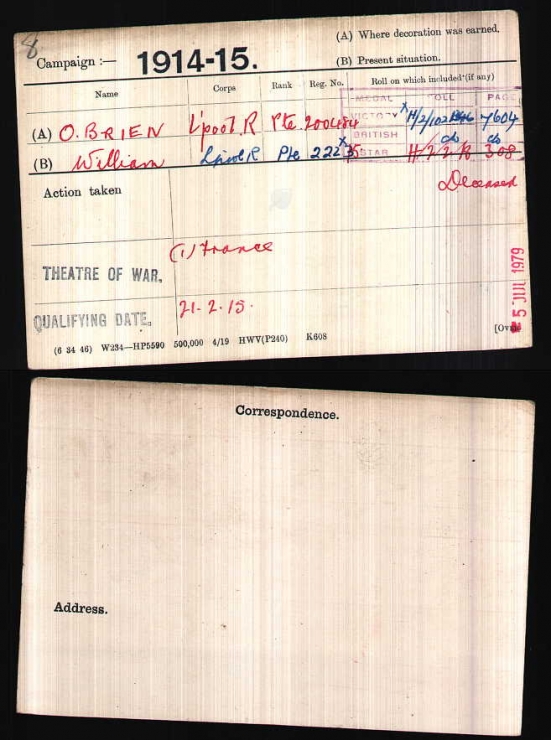 8
(A) Where decoration was earned.
Campaign :— 1914-15.
(B) Present situation.
Name Corps Rank Reg. No. Roll on which included (if any)
MEDAL ROLL PAGE
(A) O.BRIEN L'pool.R Pte 200484 VICTORY H/2/102 7604
BRITISH do do
(B) William L'pool R Pte STAR 308
Action taken
Deceased
(1) France
THEATRE OF WAR.
21-2-15.
QUALIFYING DATE.
5 JUL 1979
(6 34 46) W234—HP5590 500,000 4/19 HWV(P240) K608
[Over
Correspondence.
Address.